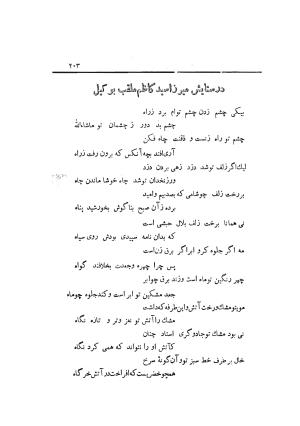 ۲۰۳
در ستایش میرزا سید کاظم ملقب بوکیل
بیکی چشم زدن چشم توام برد زراه
چشم بد دور ز چشمان تو ماشاءالله
چشم تو راه زنست و ذقنت چاه فکن
آری افتد بچه آنکس که برون رفت زراه
لیك اگر زلف تو شد دزد رهزن دزد
ورزنخدان تو شد چاه خوشا ماندن چاه
بر رخت زلف چو شامی که بصدیم وامید
برده ز آن صبح بناگوش بخورشید پناه
نی همانا برخت زلف بلال حبشی است
که بدان نامه سپیدی بودش روی سیاه
مه اگر جلوه کرو ابر اگر برق زن است
پس چرا چهره وجعدت بخلافند گواه
چهر رنگین تو ماه است وزند برق چو ابر
جعد مشکین تو ابر است و کند جلوه چو ماه
مویتو مشك ورخت آتش و این طرفه که داشت
مشك را آتش تو نغز وتر و تازه نگاه
نی بود مشك تو جادوگری استاد چنان
کآتش او را نتواند که همی کرد نگاه
خال بر طرف خط سبز تو و آن گونه سرخ
همچو خضریست که افراخت در آتش خرگاه